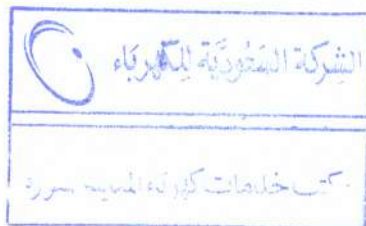 الشركة السعودية للكهرباء
مكتب خدمات كهرباء المدينة